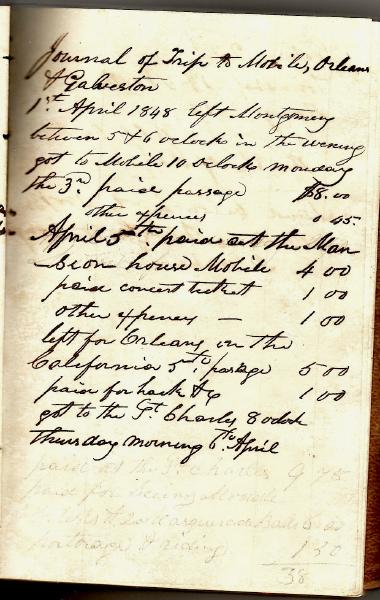 Journal of Trip to Mobile, Orleans
& Galveston
1st April 1848 left Montgomery
between 5 & 6 oclock in the evening
got to Mobile 10 Oclock monday
the 3rd. paid passage $8.00
other expences 0 45.
April 5th paid at the Man
sion house Mobile 4 00
paid concert ticket 1 00
other expences — 1 00
left for Orleans in the
California 5th. passage 5 00
paid for hack & 1 00
got to the St. Charles 8 oclock
thursday morning 6th. April
paid at the St. Charles 9 75
paid for seeing
& 2 Masquerade balls
portrage & riding 1 30
38